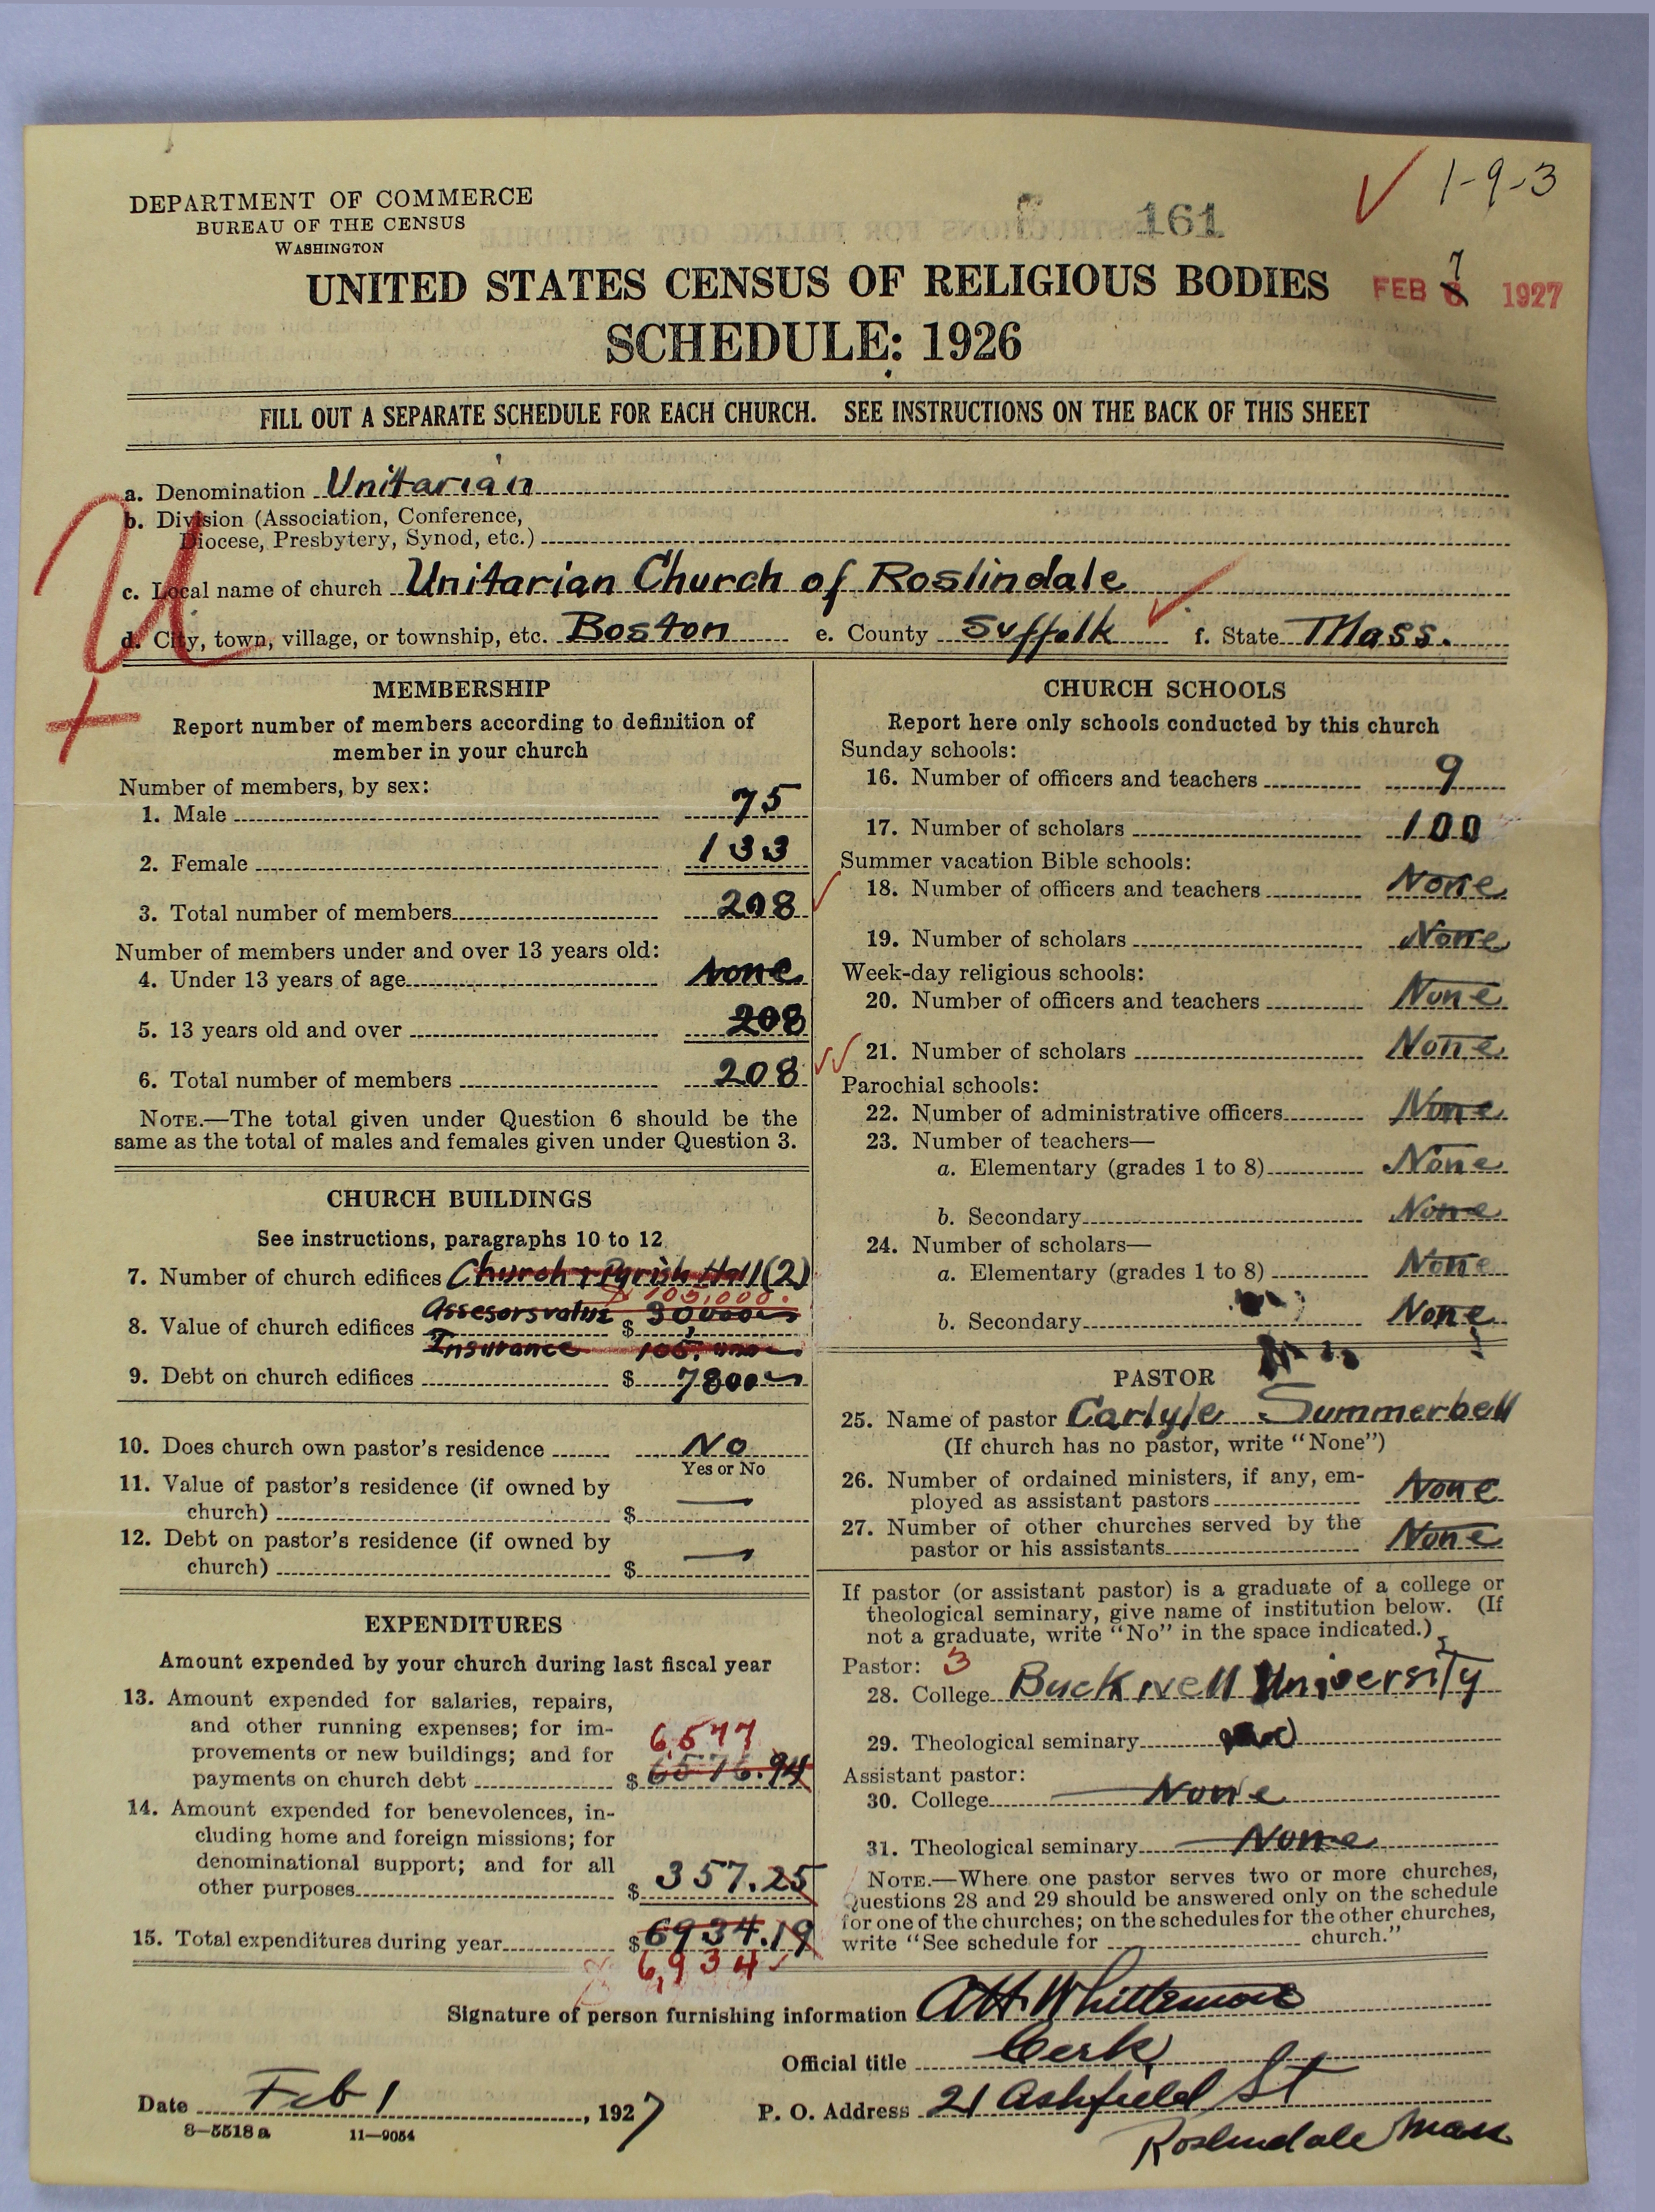 1-9-3
DEPARTMENT OF COMMERCE
BUREAU OF THE CENSUS
WASHINGTON
161
UNITED STATES CENSUS OF RELIGIOUS BODIES
7
FEB 6 1927
SCHEDULE: 1926
FILL OUT A SEPARATE SCHEDULE FOR EACH CHURCH. SEE INSTRUCTIONS ON THE BACK OF THIS SHEET
U
+
a. Denomination Unitarian
b. Division (Association, Conference,
Diocese, Presbytery, Synod, etc.)
c. Local name of church Unitarian Church of Roslindale
d. City, town, village, or township, etc. Boston e. County Suffolk f. State Mass.
MEMBERSHIP
Report number of members according to definition of
member in your church
Number of members, by sex:
1. Male 75
2. Female 133
3. Total number of members 208
Number of members under and over 13 years old:
4. Under 13 years of age None
5. 13 years old and over 208
6. Total number of members 208
NOTE.—The total given under Question 6 should be the
same as the total of males and females given under Question 3.
CHURCH BUILDINGS
See instructions, paragraphs 10 to 12
7. Number of church edifices Church & Parish Hall (2)
105,000.
Assesors value
8. Value of church edifices $
Insurance 105,000
9. Debt on church edifices $ 7800
10. Does church own pastor's residence No
Yes or No
11. Value of pastor's residence (if owned by
church) $ —
12. Debt on pastor's residence (if owned by
church) $ —
EXPENDITURES
Amount expended by your church during last fiscal year
13. Amount expended for salaries, repairs,
and other running expenses; for im-
provements or new buildings; and for
6,577
payments on church debt $ 6576.94
14. Amount expended for benevolences, in-
cluding home and foreign missions; for
denominational support; and for all
other purposes $ 357.25
15. Total expenditures during year $ 6934.19
6,934
CHURCH SCHOOLS
Report here only schools conducted by this church
Sunday schools:
16. Number of officers and teachers 9
17. Number of scholars 100
Summer vacation Bible schools:
18. Number of officers and teachers None
19. Number of scholars None
Week-day religious schools:
20. Number of officers and teachers None
21. Number of scholars None
Parochial schools:
22. Number of administrative officers None
23. Number of teachers—
a. Elementary (grades 1 to 8) None
b. Secondary None
24. Number of scholars—
a. Elementary (grades 1 to 8) None
b. Secondary None
PASTOR
25. Name of pastor Carlyle Summerbell
(If church has no pastor, write "None")
26. Number of ordained ministers, if any, em-
ployed as assistant pastors None
27. Number of other churches served by the
pastor or his assistants None
If pastor (or assistant pastor) is a graduate of a college or
theological seminary, give name of institution below. (If
not a graduate, write "No" in the space indicated.)
Pastor: 3
28. College Bucknell University
29. Theological seminary
Assistant pastor:
30. College None
31. Theological seminary None
NOTE.—Where one pastor serves two or more churches,
Questions 28 and 29 should be answered only on the schedule
for one of the churches; on the schedules for the other churches,
write "See schedule for church."
Signature of person furnishing information A H Whittemore
Official title Clerk
Date Feb 1, 1927 P. O. Address 21 Ashfield St
Roslindale Mass
8—5518a 11—9054